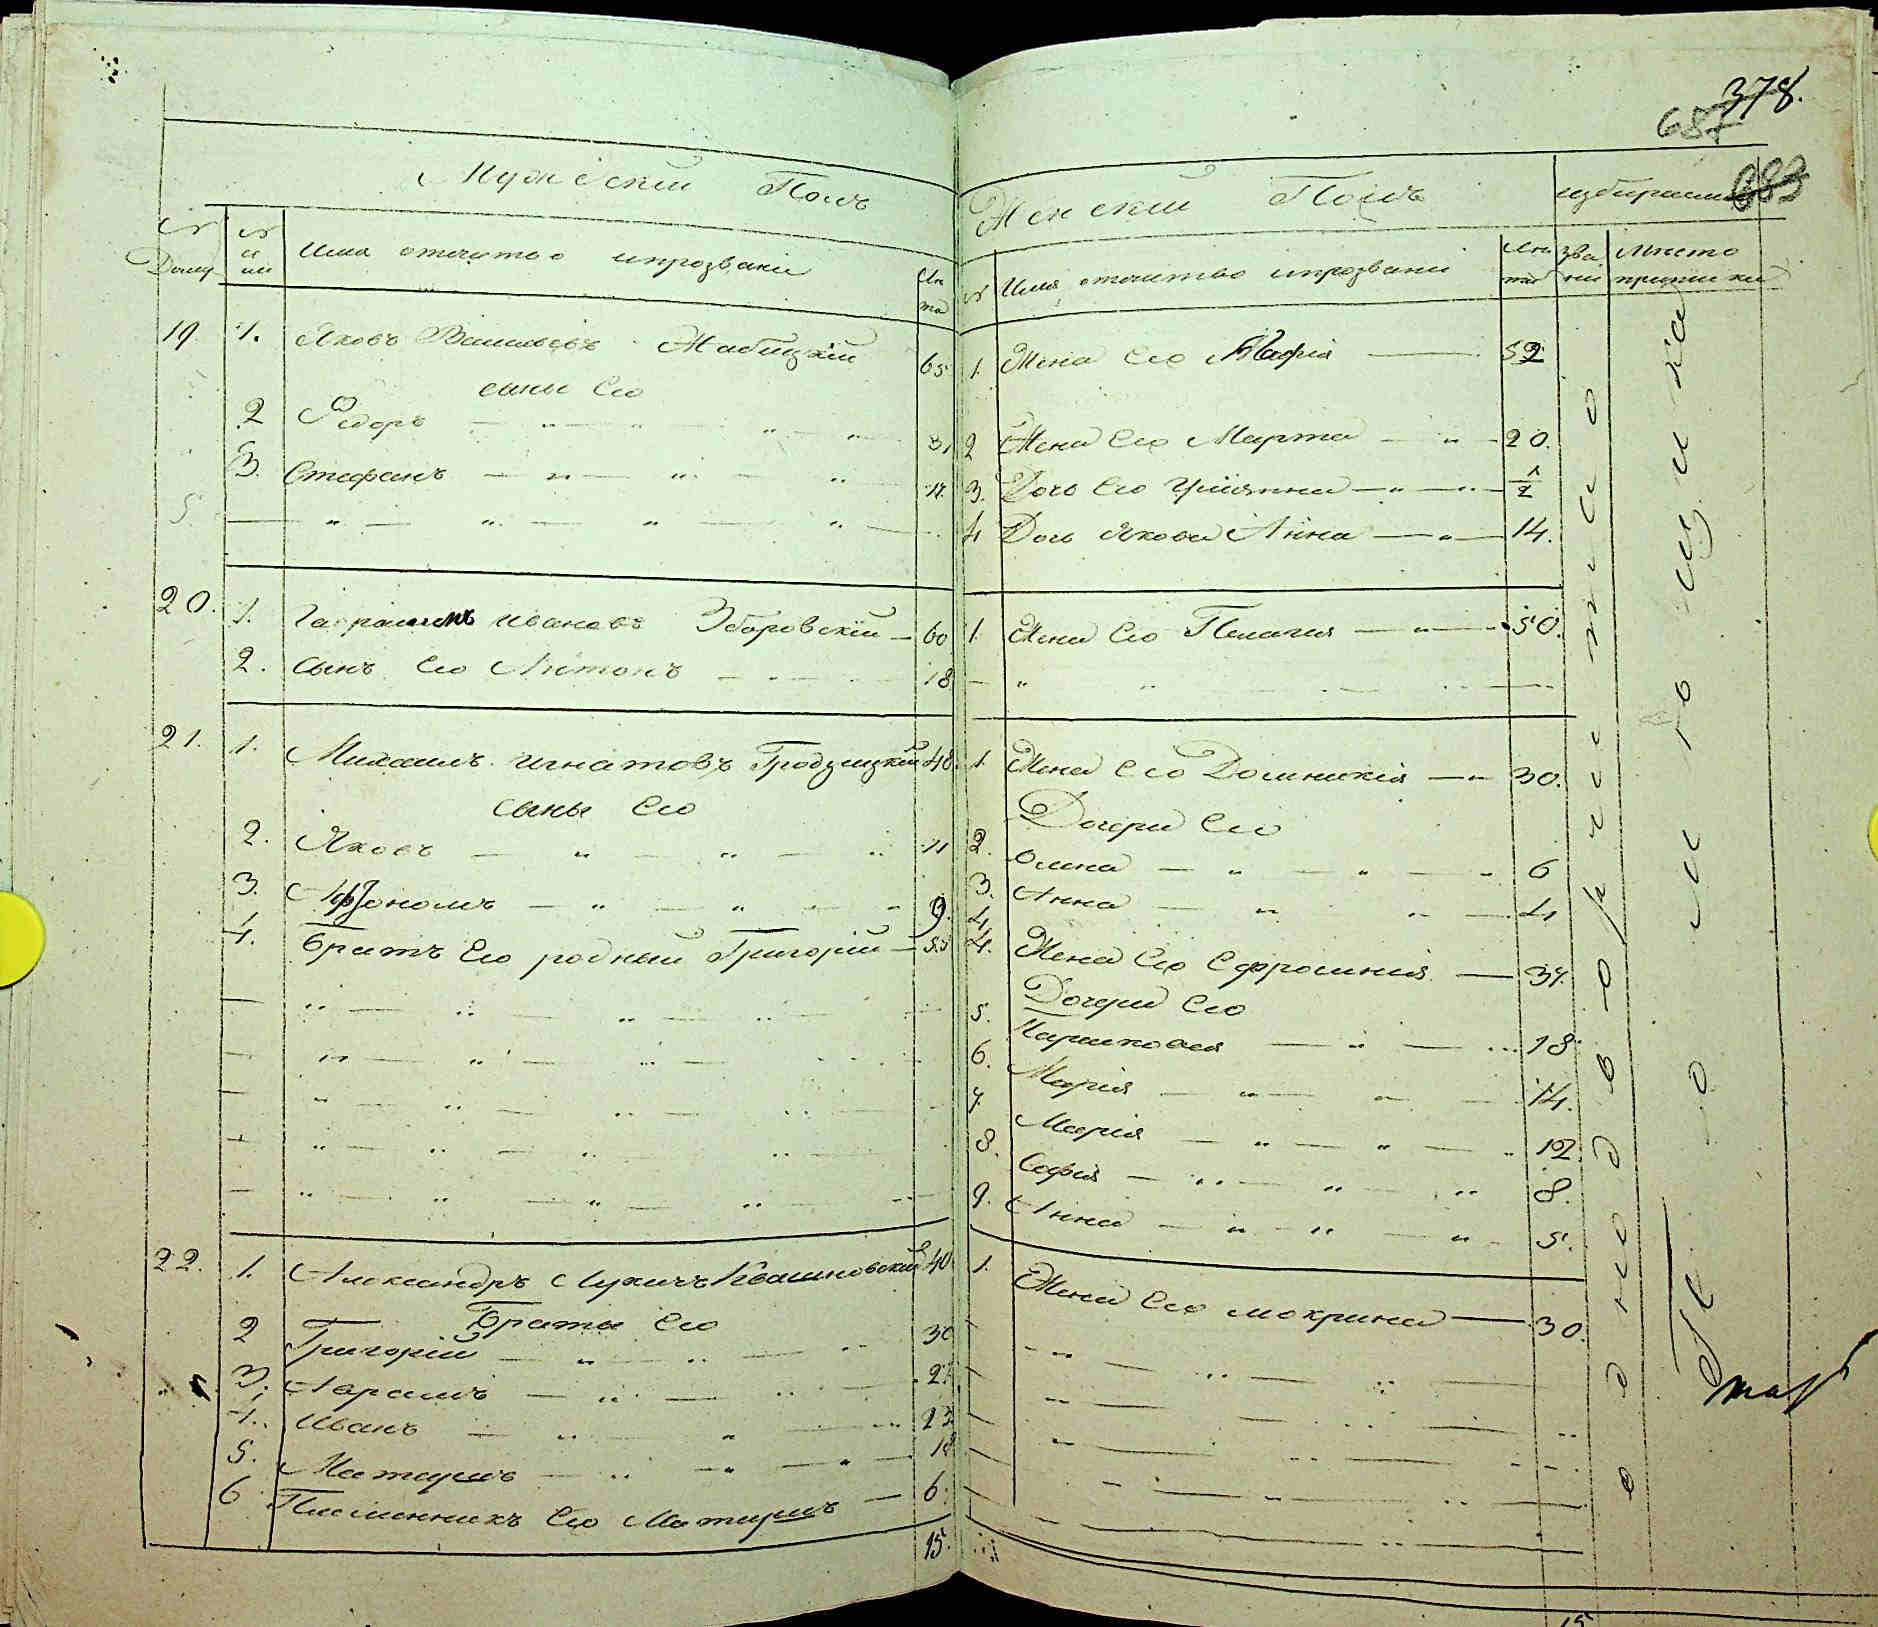 Мужескій Полъ
№ Дому
№
Имя отечество ипрозвание
Лѣта
19
1. Яковъ Васильевъ Жабицкій 65
сыны Его
2 Ѳедоръ — „ — „ — „ — „ 31
3. Стефанъ — „ — „ — „ 17.
20. 1. Гарасимъ Ивановъ Зборовскій — 60
2. Сынъ Его Антонъ — 18
21. 1. Михаилъ Игнатовъ Гродзицкій 48
сыны Его
2. Яковъ — „ — „ — „ 11
3. — „ — „ — „ 9.
4. Братъ Его родный Григорій — 55
22. 1. Александръ Лукичъ Квашновскій 40
Браты Его
2 Григорій — „ — „ — „ 30
3. Абрамъ — „ — „ — 27
4. Иванъ — „ — „ — „ 23
5. Матеушъ — „ — „ — „ — 18
6 Племянникъ Его Матеушъ — 6.
15.
378.
687
683
Женскій Полъ
№
Имя отечество ипрозвание
Лѣта
звание
Мѣсто приписки
1. Жена Его Марія — 52
2 Жена Его Марта — „ — 20.
3. Дочь Его Уліянна — „ — „ — 1/2
4 Дочь Якова Анна — „ — 14.
1. Жена Его Пелагия — „ — 50.
1. Жена Его Доминикія — „ 30.
Дочери Его
2. — „ — „ — „ 6
3. Анна — „ — „ — 4
4. Жена Его Ефросинія — 37.
Дочери Его
5. — „ — 18
6. Марія — „ — „ — 14.
7. Марія — „ — „ — „ 12
8. Софія — „ — „ — „ 8.
9. Анна — „ — „ — „ 5.
1. Жена Его Мокрина — 30.
15
однодворческаго
помощика